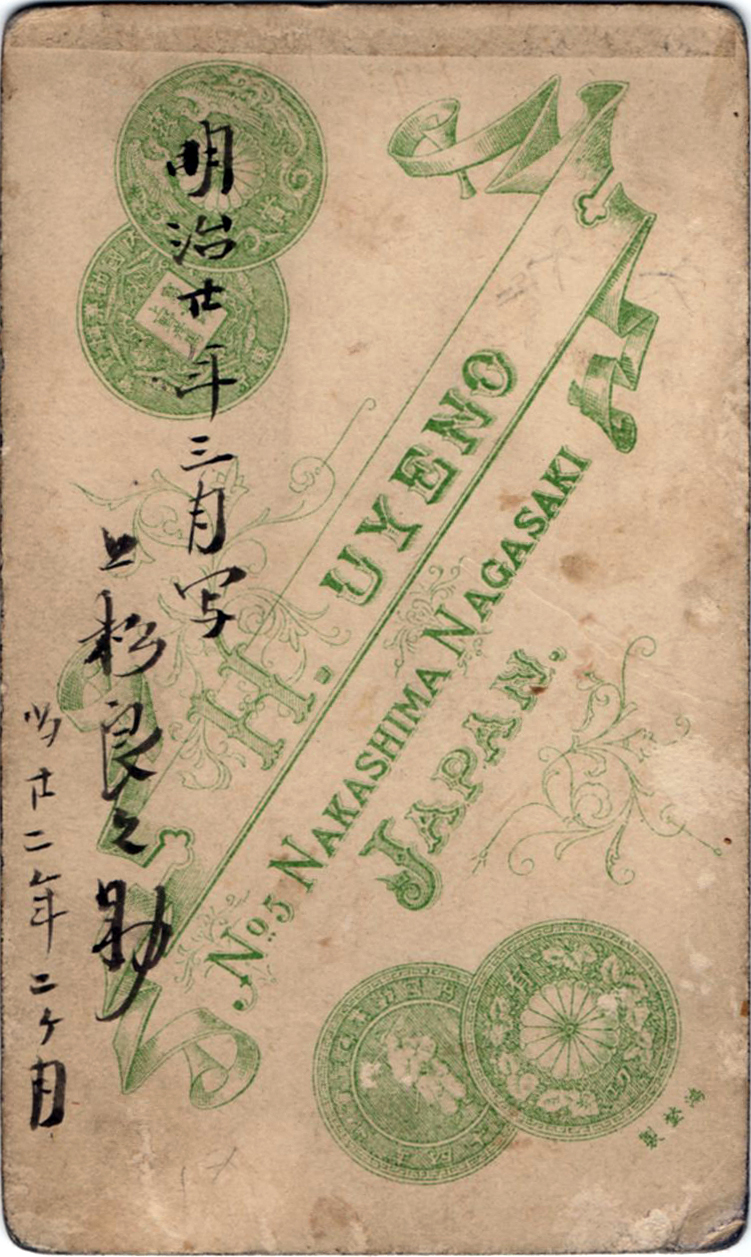 明治廿年三月写
上杉良之助
当廿二年二ヶ月
H. UYENO
No. 5 NAKASHIMA NAGASAKI
JAPAN.